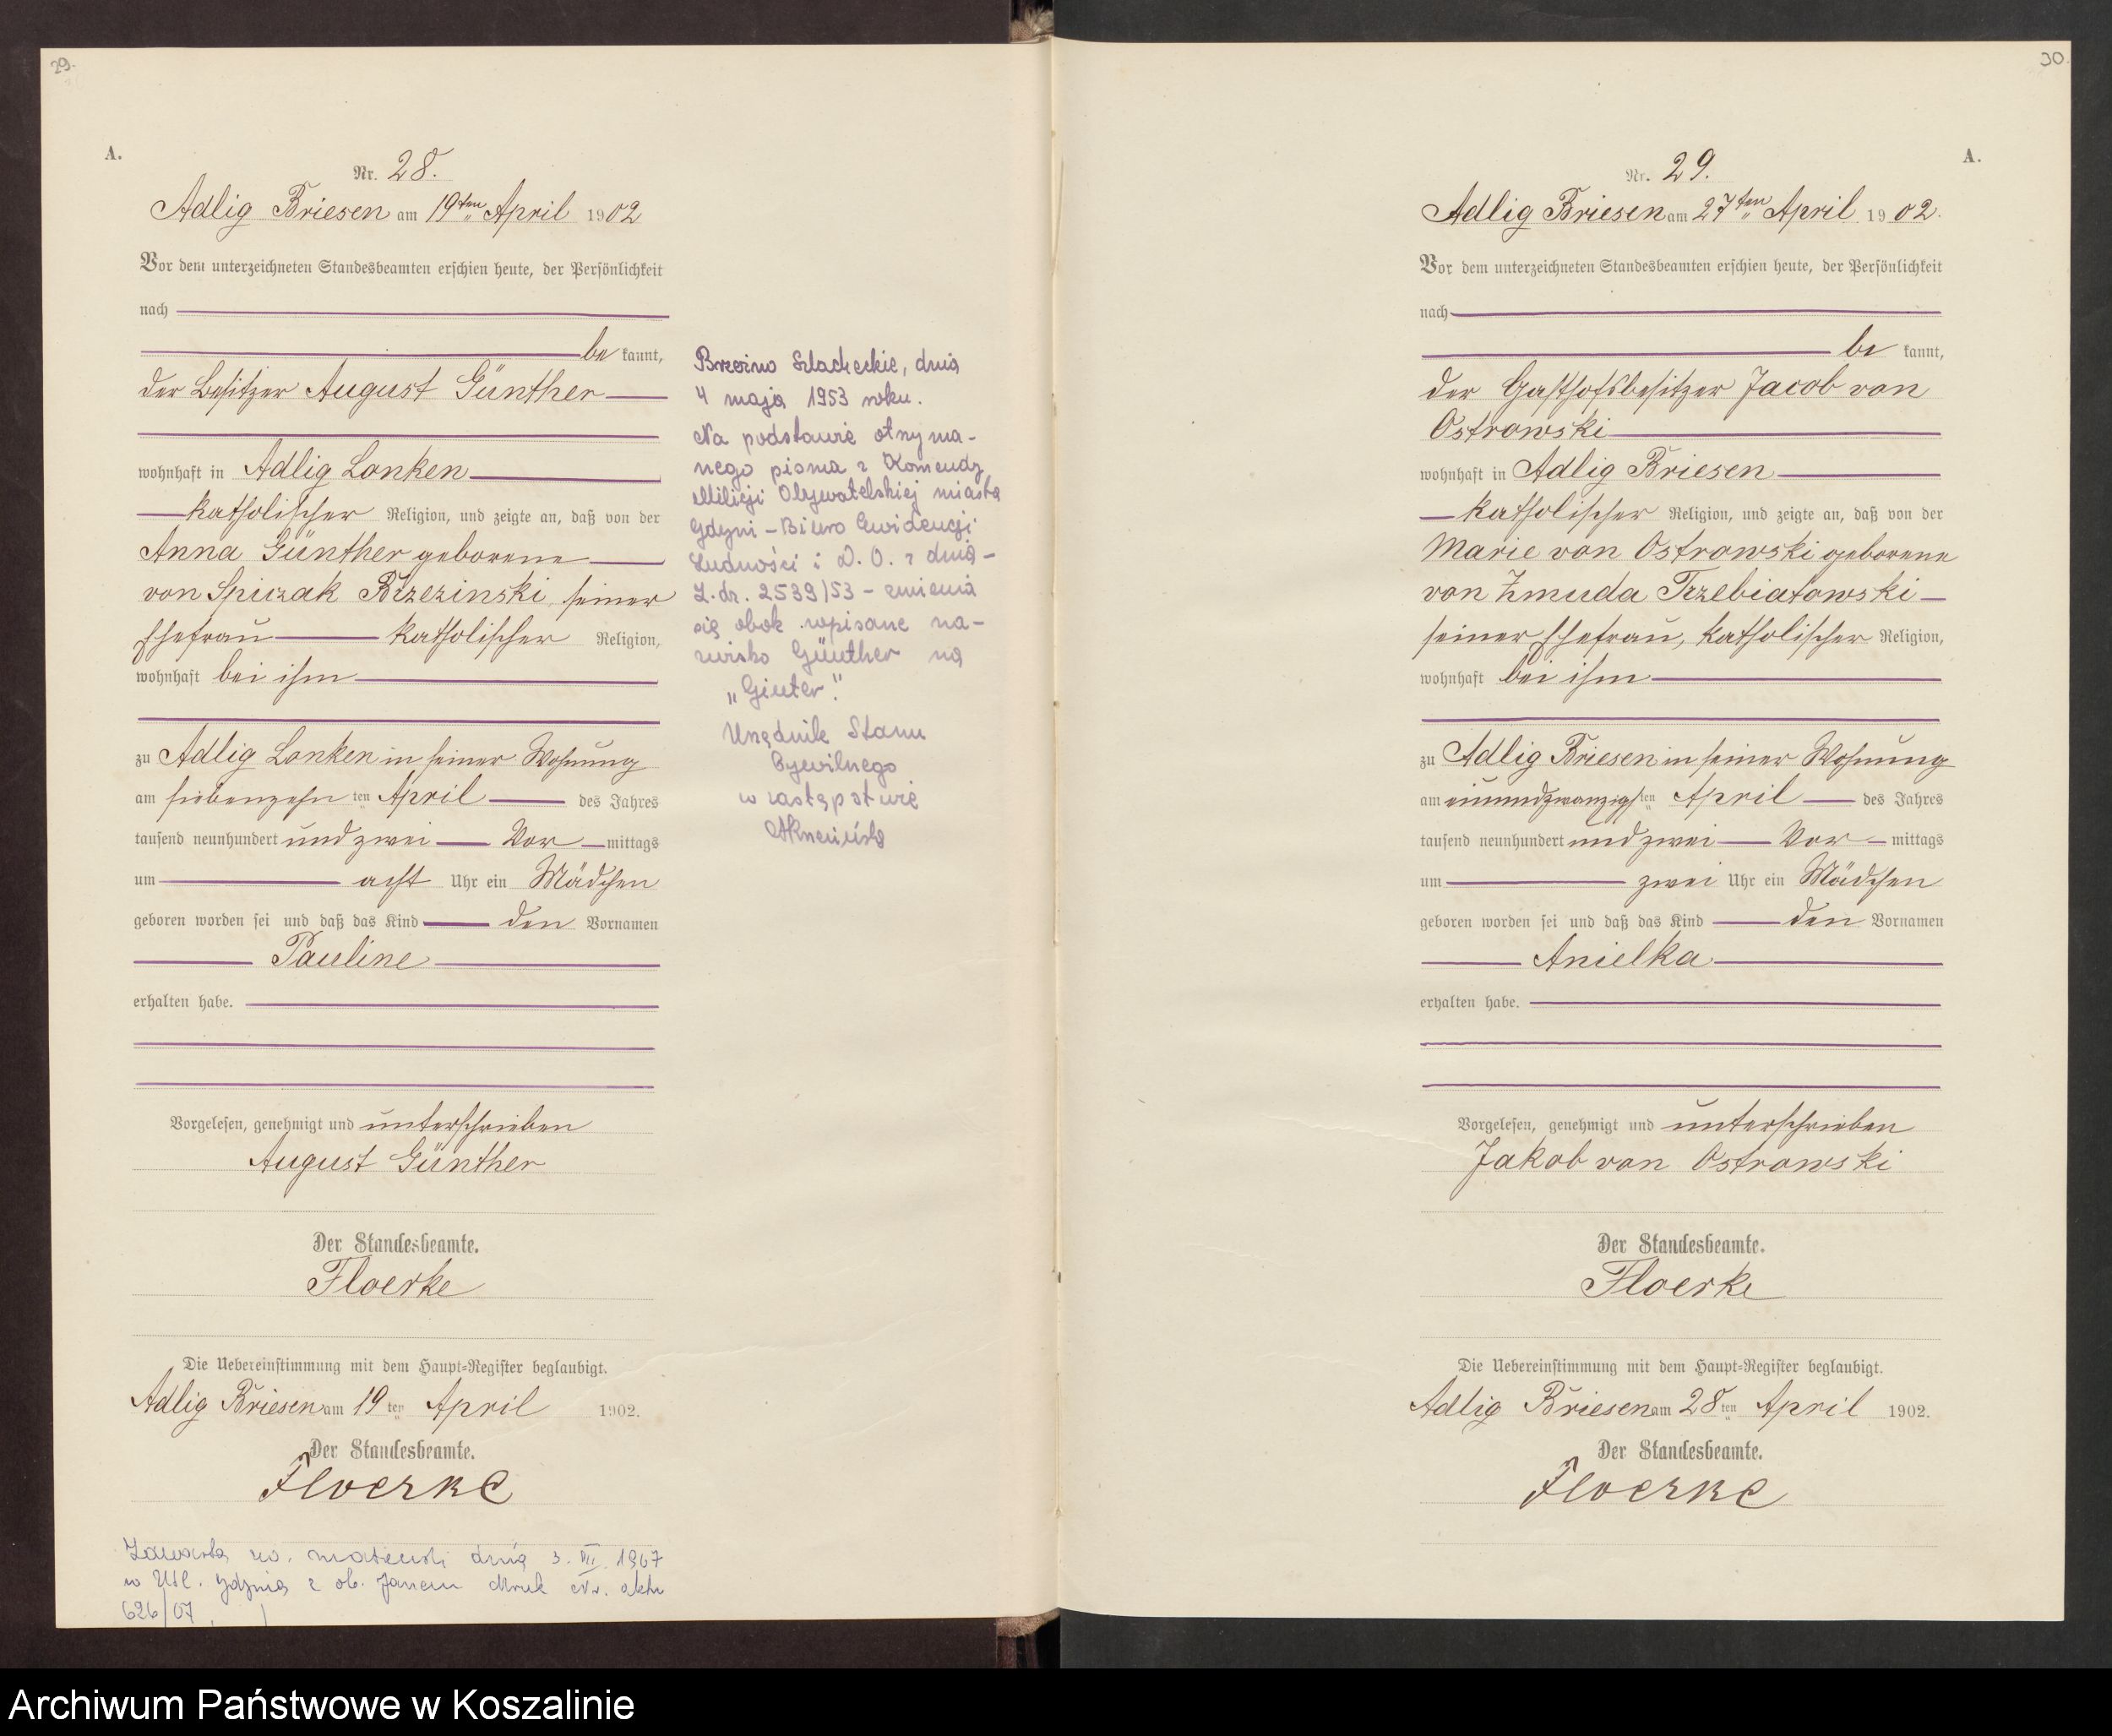 29.
A.
Nr. 28.
Adlig Briesen am 19ten April 1902
Vor dem unterzeichneten Standesbeamten erschien heute, der Persönlichkeit
nach
be kannt,
der Besitzer August Günther
wohnhaft in Adlig Lonken
katholischer Religion, und zeigte an, daß von der
Anna Günther geborene
von Spiczak Brzezinski, seiner
Ehefrau katholischer Religion,
wohnhaft bei ihm
zu Adlig Lonken in seiner Wohnung
am siebenzehn ten April des Jahres
tausend neunhundert und zwei Vor mittags
um acht Uhr ein Mädchen
geboren worden sei und daß das Kind den Vornamen
Pauline
erhalten habe.
Vorgelesen, genehmigt und unterschrieben
August Günther
Der Standesbeamte.
Floerke
Die Uebereinstimmung mit dem Haupt-Register beglaubigt.
Adlig Briesen am 19 ten April 1902.
Der Standesbeamte.
Floerke
w USC. Gdynia z ob. Janem Mruk Nr. aktu
Brzeźno Szlacheckie, dnia
4 maja 1953 roku.
Na podstawie otrzyma-
nego pisma z Komendy
Milicji Obywatelskiej miasta
Gdyni - Biuro Ewidencji
Ludności i D. O. z dnia -
L. dz. 2539/53 - zmienia
się obok wpisane na-
zwisko Günther na
„Ginter".
Urzędnik Stanu
Cywilnego
w zastępstwie
30.
A.
Nr. 29.
Adlig Briesen am 27ten April 1902.
Vor dem unterzeichneten Standesbeamten erschien heute, der Persönlichkeit
nach
be kannt,
der Gasthofsbesitzer Jacob von
Ostrowski
wohnhaft in Adlig Briesen
katholischer Religion, und zeigte an, daß von der
Marie von Ostrowski geborene
von Zmuda Trzebiatowski
seiner Ehefrau, katholischer Religion,
wohnhaft bei ihm
zu Adlig Briesen in seiner Wohnung
am einundzwanzigs ten April des Jahres
tausend neunhundert und zwei Vor mittags
um zwei Uhr ein Mädchen
geboren worden sei und daß das Kind den Vornamen
Anielka
erhalten habe.
Vorgelesen, genehmigt und unterschrieben
Jakob von Ostrowski
Der Standesbeamte.
Floerke
Die Uebereinstimmung mit dem Haupt-Register beglaubigt.
Adlig Briesen am 28 ten April 1902.
Der Standesbeamte.
Floerke
Archiwum Państwowe w Koszalinie